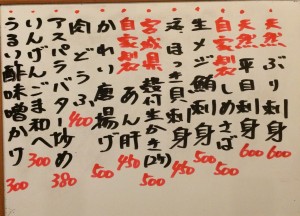 天然ぶり刺身 600
天然平目刺身 600
自家製しめさば 500
生メジ鮪刺身 500
活ほっき貝刺身 400
宮城県殻付生かき(2ケ) 500
自家製あん肝 450
かれい唐揚げ 500
肉どうふ 400
アスパラバター炒め 380
いんげんごま和へ 300
うるい酢味噌かけ 300